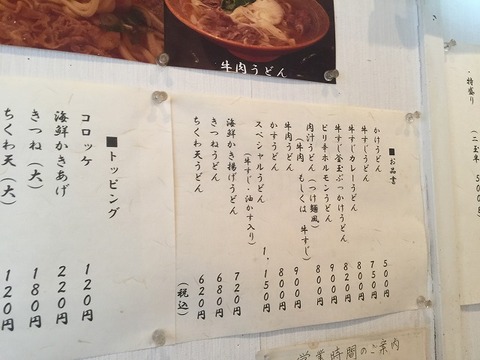 牛肉うどん
・特盛り
(二玉半
500円
■お品書
かけうどん 500円
牛すじうどん 750円
牛すじカレーうどん 800円
牛すじ釜玉ぶっかけうどん 820円
ピリ辛ホルモンうどん 900円
肉汁うどん(つけ麺風) 800円
(牛肉 もしくは 牛すじ) 900円
牛肉うどん 800円
かすうどん 800円
スペシャルうどん 1,150円
(牛すじ・油かす入り)
海鮮かき揚げうどん 720円
きつねうどん 680円
ちくわ天うどん 620円
(税込)
■トッピング
コロッケ 120円
海鮮かきあげ 220円
きつね(大) 180円
ちくわ天(大) 120円
営業時間のご案内